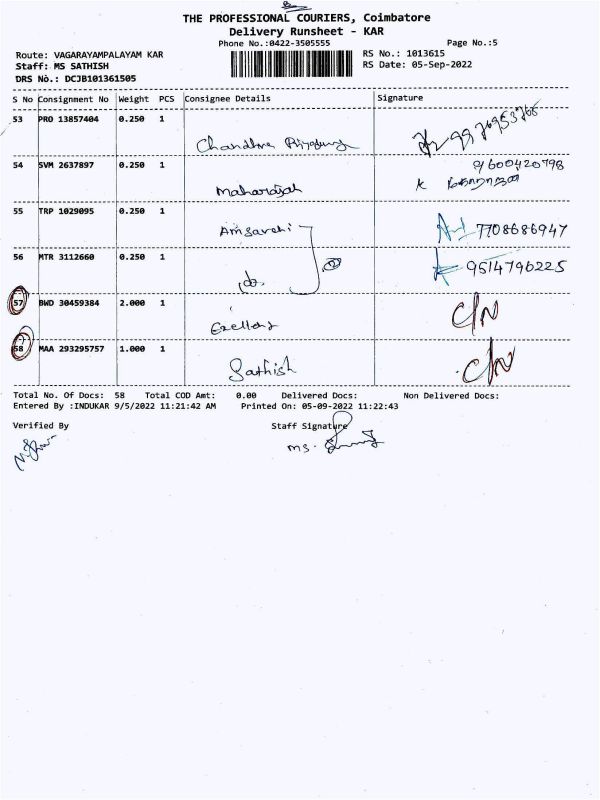 THE PROFESSIONAL COURIERS, Coimbatore
Delivery Runsheet - KAR
Phone No.:0422-3505555 Page No.:5
Route: VAGARAYAMPALAYAM KAR RS No.: 1013615
Staff: MS SATHISH RS Date: 05-Sep-2022
DRS No.: DCJB101361505
S No Consignment No Weight PCS Consignee Details Signature
53 PRO 13857404 0.250 1
Chandhra
54 SVM 2637897 0.250 1 9600420798
Maharajah
55 TRP 1029095 0.250 1
Amsaveni 7708686947
56 MTR 3112660 0.250 1 9514796225
do.
57 BWD 30459384 2.000 1 C/N
Excellent
58 MAA 293295757 1.000 1 C/N
Sathish
Total No. Of Docs: 58 Total COD Amt: 0.00 Delivered Docs: Non Delivered Docs:
Entered By :INDUKAR 9/5/2022 11:21:42 AM Printed On: 05-09-2022 11:22:43
Verified By Staff Signature
MS.